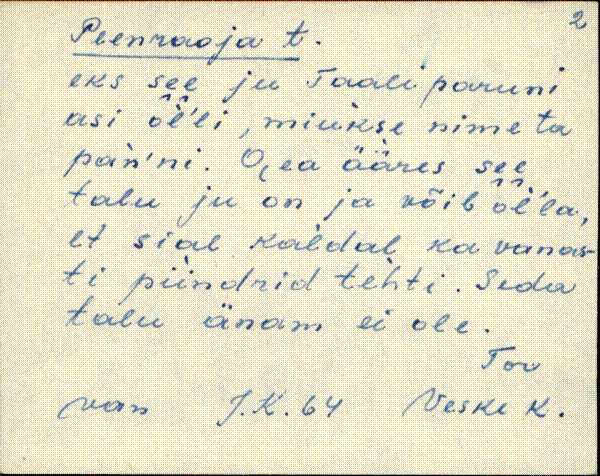 2
Peenraoja t.
eks see ju Taali paruni
asi ôl̂'li, miukse nime ta
pan'ni. Oja ääres see
talu ju on ja võib ôl̂'la,
et sial kaldal ka vanas-
ti piindrid tehti. Seda
talu änam ei ole.
Tor
van J.K. 64 Veske K.